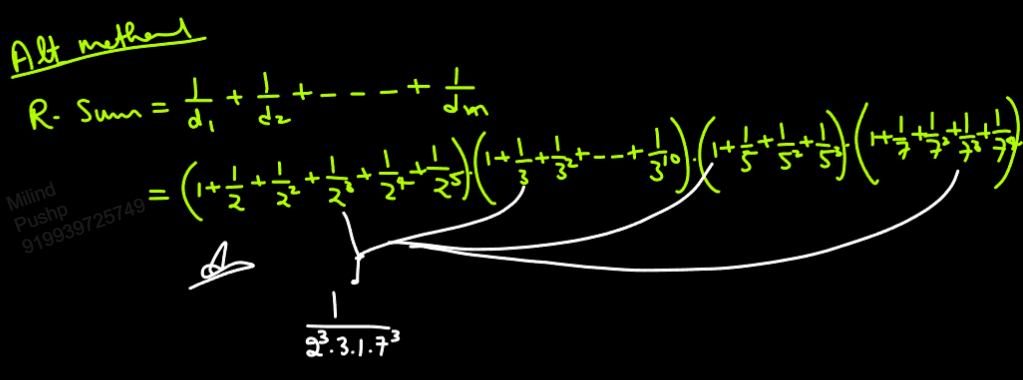 Alt method
R. Sum = 1/d₁ + 1/d₂ + - - - + 1/dₘ
= (1+1/2+1/2²+1/2³+1/2⁴+1/2⁵)·(1+1/3+1/3²+--+1/3¹⁰)·(1+1/5+1/5²+1/5³)·(1+1/7+1/7²+1/7³+1/7⁴)
Milind
Pushp
919939725749
d
1/2³.3.1.7³